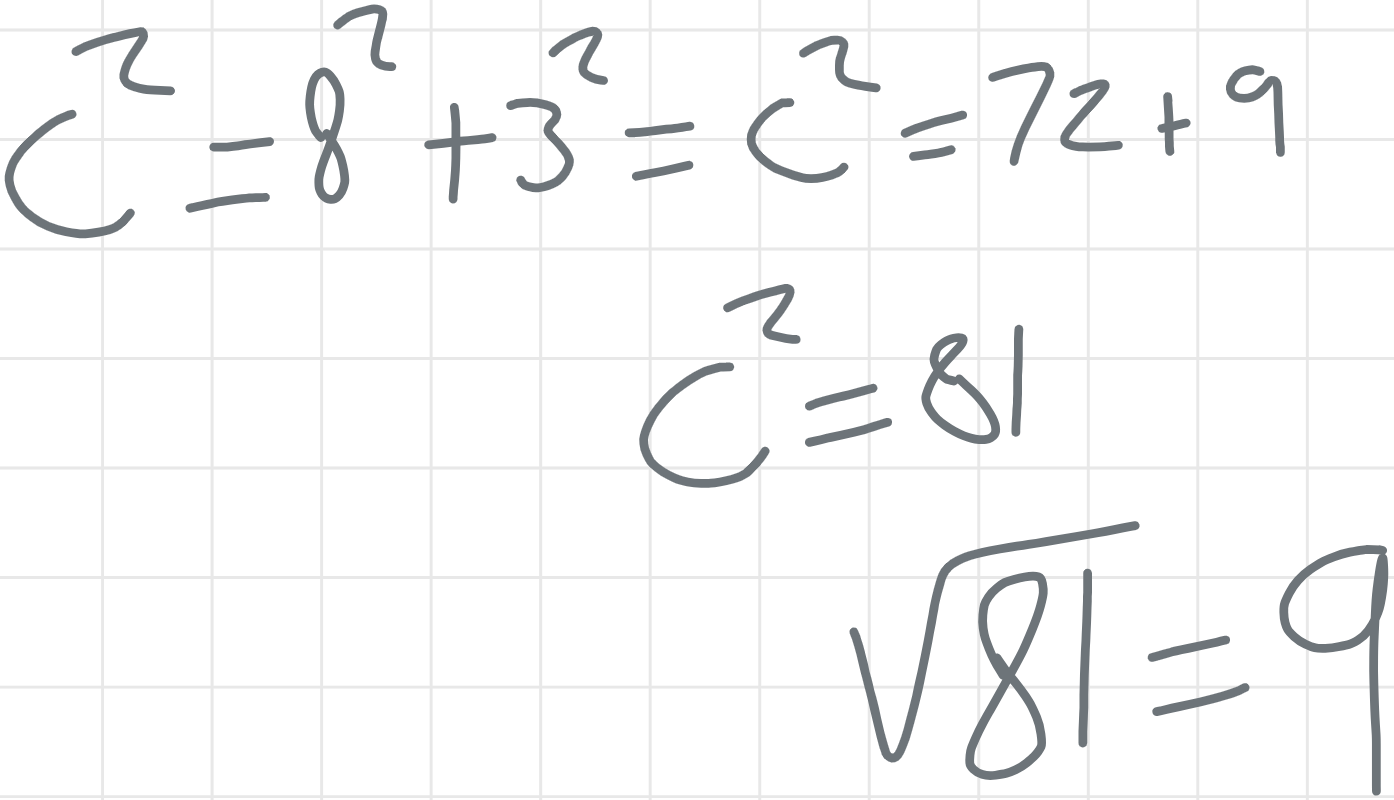 C² = 8² + 3² = C² = 72 + 9
C² = 81
√81 = 9